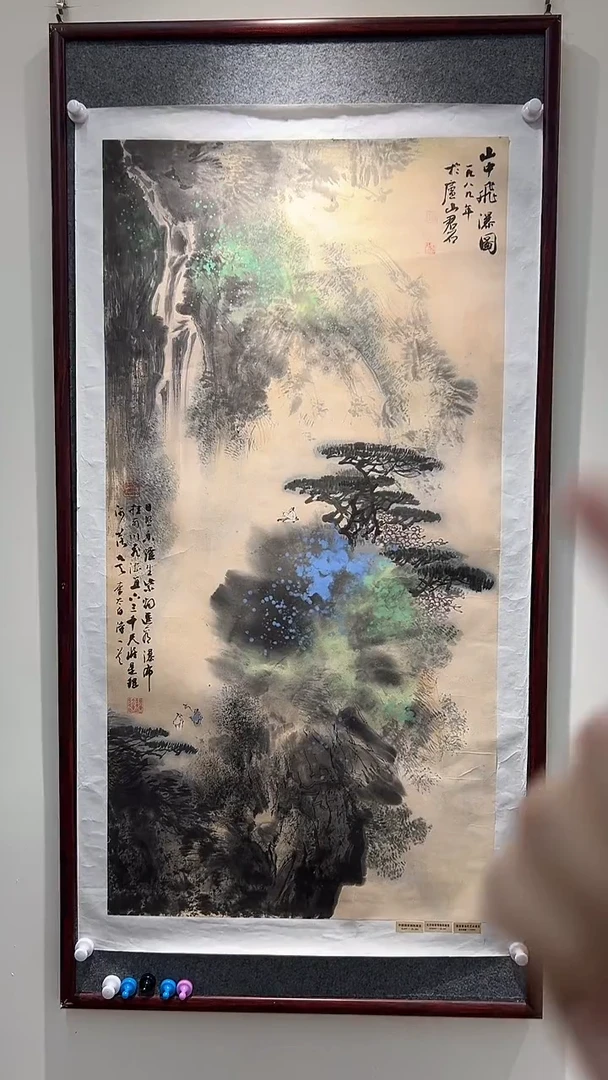 山中飛瀑圖
一九八九年
於廬山君石
日照香爐生紫烟遥看瀑布
挂前川飛流直下三千尺疑是銀
河落九天 李太白詩一首